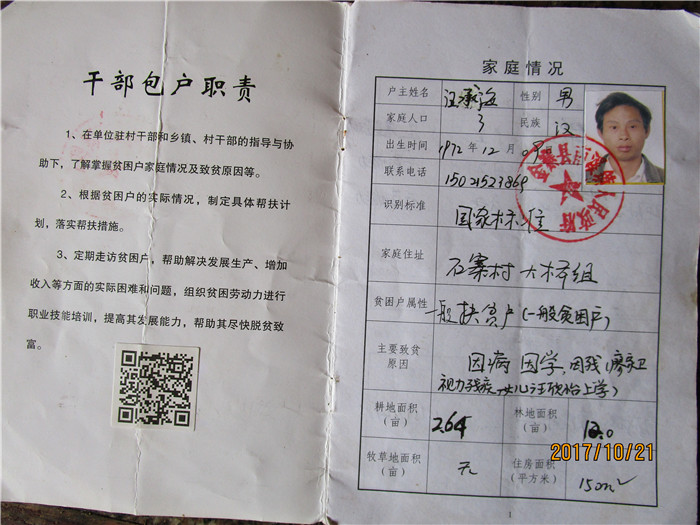 干部包户职责
1、在单位驻村干部和乡镇、村干部的指导与协
助下，了解掌握贫困户家庭情况及致贫原因等。
2、根据贫困户的实际情况，制定具体帮扶计
划，落实帮扶措施。
3、定期走访贫困户，帮助解决发展生产、增加
收入等方面的实际困难和问题，组织贫困劳动力进行
职业技能培训，提高其发展能力，帮助其尽快脱贫致
富。
家庭情况
户主姓名 汪承海 性别 男
家庭人口 3 民族 汉
出生时间 1972年12月
联系电话 15021523869
识别标准 国家标准
家庭住址 石寨村 大桥组
贫困户属性 一般扶贫户(一般贫困户)
主要致贫
原因
因病 因学，因残(廖家卫
视力残疾 女儿汪 上学)
耕地面积
（亩）
2.64
林地面积
（亩）
12.0
牧草地面积
（亩）
无
住房面积
（平方米）
150m²
金寨县 人民政府
2017/10/21
1